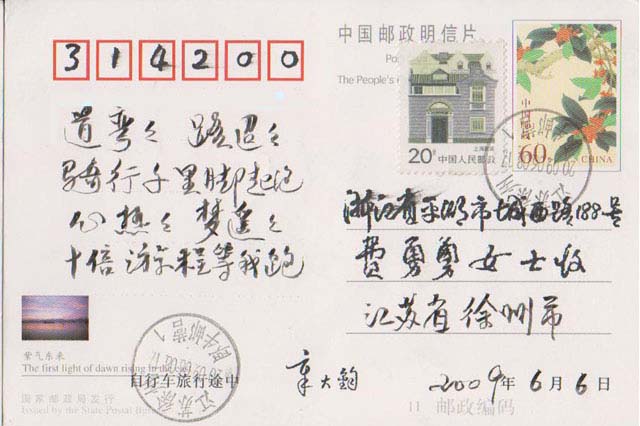 314200
中国邮政明信片
Po
The People's
20分 中国人民邮政
上海民居
中国邮政
60分
CHINA
道弯々 路迢々
骑行千里脚起泡
心想々 梦遥々
十倍游程等我跑
浙江省平湖市城西路188号
费勇勇女士收
江苏省徐州市
章大钧 2009年6月6日
紫气东来
The first light of dawn rising in the east
自行车旅行途中
国家邮政局发行
Issued by the State Postal Bureau
11 邮政编码